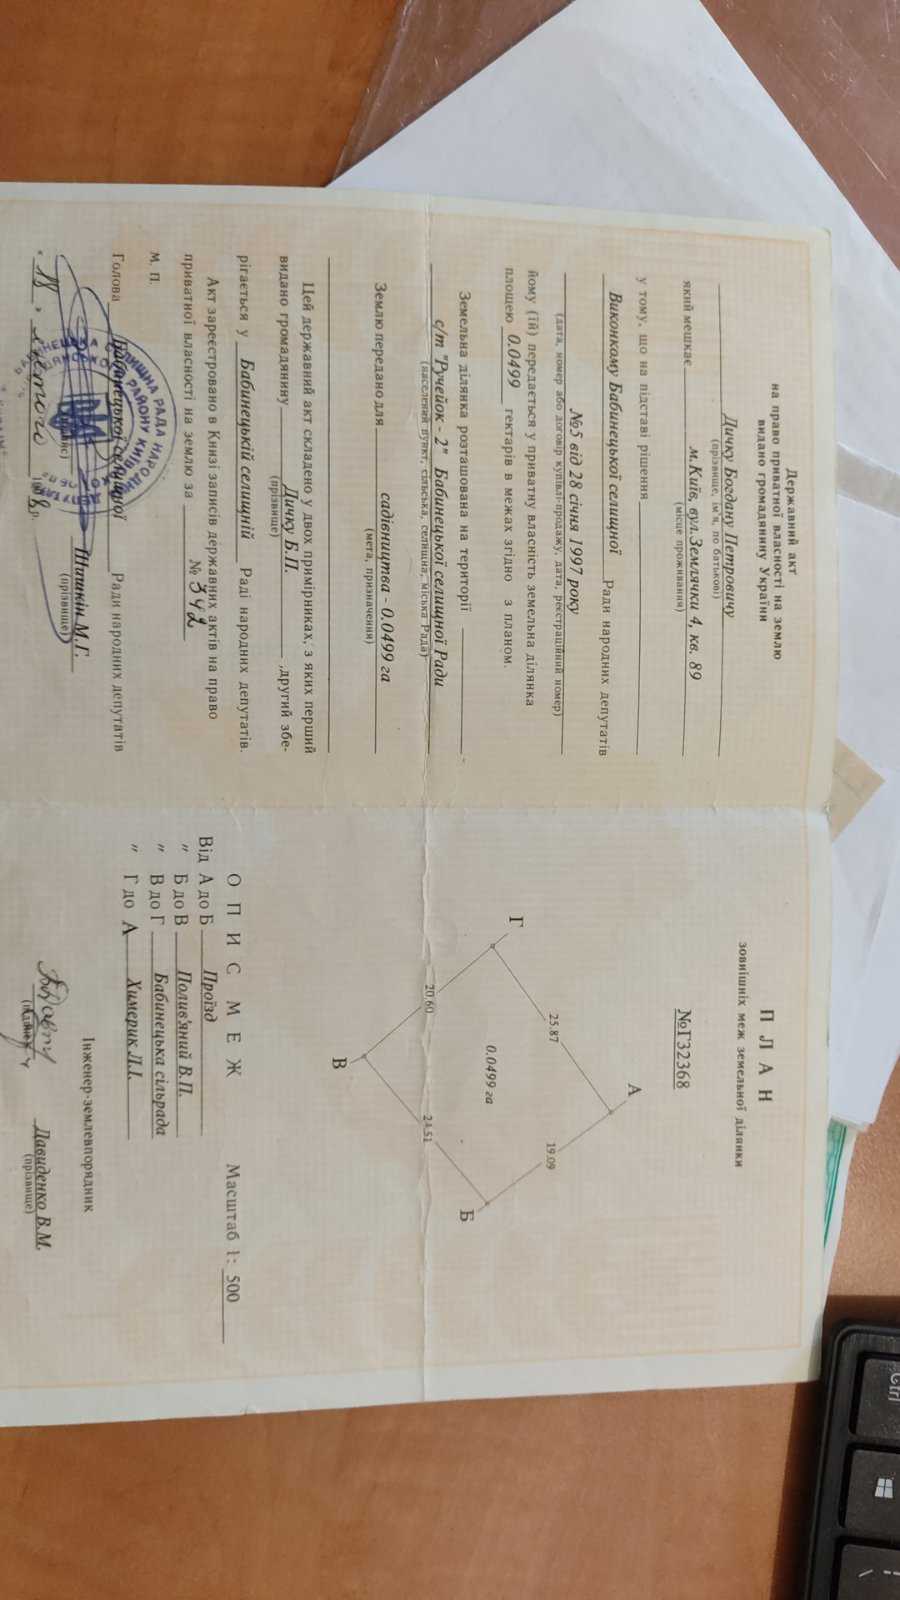 Державний акт
на право приватної власності на землю
видано громадянину України
Дичку Богдану Петровичу
(прізвище, ім'я, по батькові)
який мешкає м.Київ, вул.Землячки 4, кв. 89
(місце проживання)
у тому, що на підставі рішення
Виконкому Бабинецької селищної Ради народних депутатів
№5 від 28 січня 1997 року
(дата, номер або договір купівлі-продажу, дата, реєстраційний номер)
йому (їй) передається у приватну власність земельна ділянка
площею 0.0499 гектарів в межах згідно з планом.
Земельна ділянка розташована на території
с/т "Ручейок - 2" Бабинецької селищної Ради
(населений пункт, сільська, селищна, міська Рада)
Землю передано для садівництва - 0.0499 га
(мета, призначення)
Цей державний акт складено у двох примірниках, з яких перший
видано громадянину Дичку Б.П. ,другий збе-
(прізвище)
рігається у Бабинецькій селищній Раді народних депутатів.
Акт зареєстровано в Книзі записів державних актів на право
приватної власності на землю за № 342
М. П.
Голова Бабинецької селищної Ради народних депутатів
Шишкін М.Г.
(підпис) (прізвище)
18 лютого 1998 р.
П Л А Н
зовнішніх меж земельної ділянки
№Г32368
А
Г
25.87
19.09
0.0499 га
Б
20.60
24.51
В
О П И С М Е Ж Масштаб 1: 500
Від А до Б Проїзд
" Б до В Полив'яний В.П.
" В до Г Бабинецька сільрада
" Г до А Химерик Л.І.
Інженер-землевпорядник
Давиденко В.М.
(підпис) (прізвище)
Ctrl